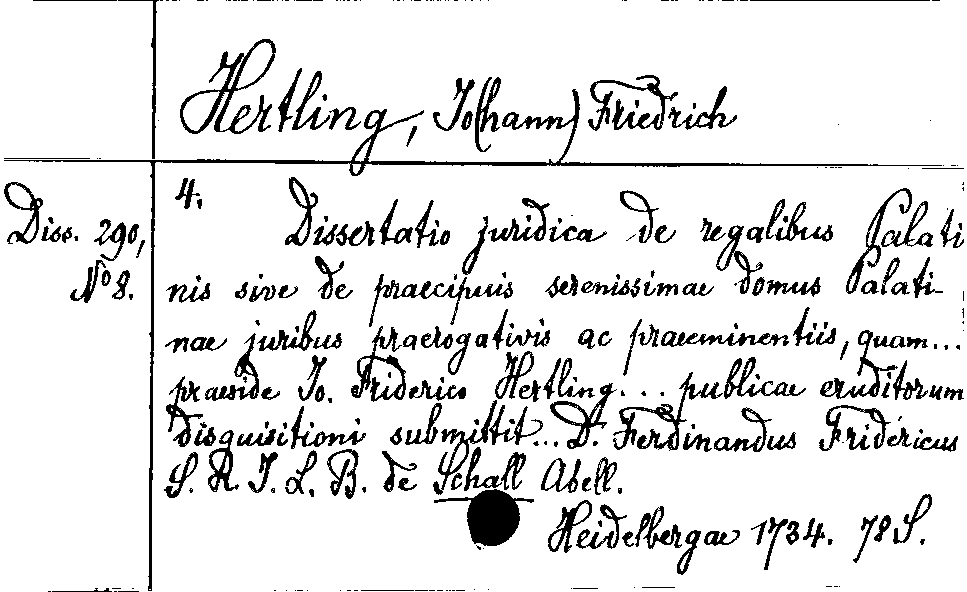 Hertling, Jo(hann) Friedrich
Diss. 290,
No 8.
4.
Dissertatio juridica de regalibus Palati
nis sive de praecipuis serenissimae domus Palati-
nae juribus praerogativis ac praeeminentiis, quam...
praeside Jo. Friderico Hertling... publicae eruditorum
disquisitioni submittit... D. Ferdinandus Fridericus
S. R. J. L. B. de Schall Abell.
Heidelbergae 1734. 78 S.